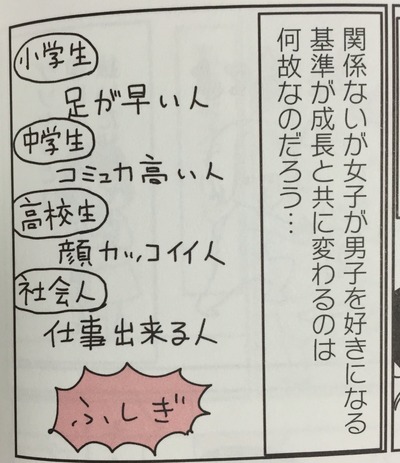 関係ないが女子が男子を好きになる
基準が成長と共に変わるのは
何故なのだろう…
小学生
足が早い人
中学生
コミュカ高い人
高校生
顔カッコイイ人
社会人
仕事出来る人
ふしぎ